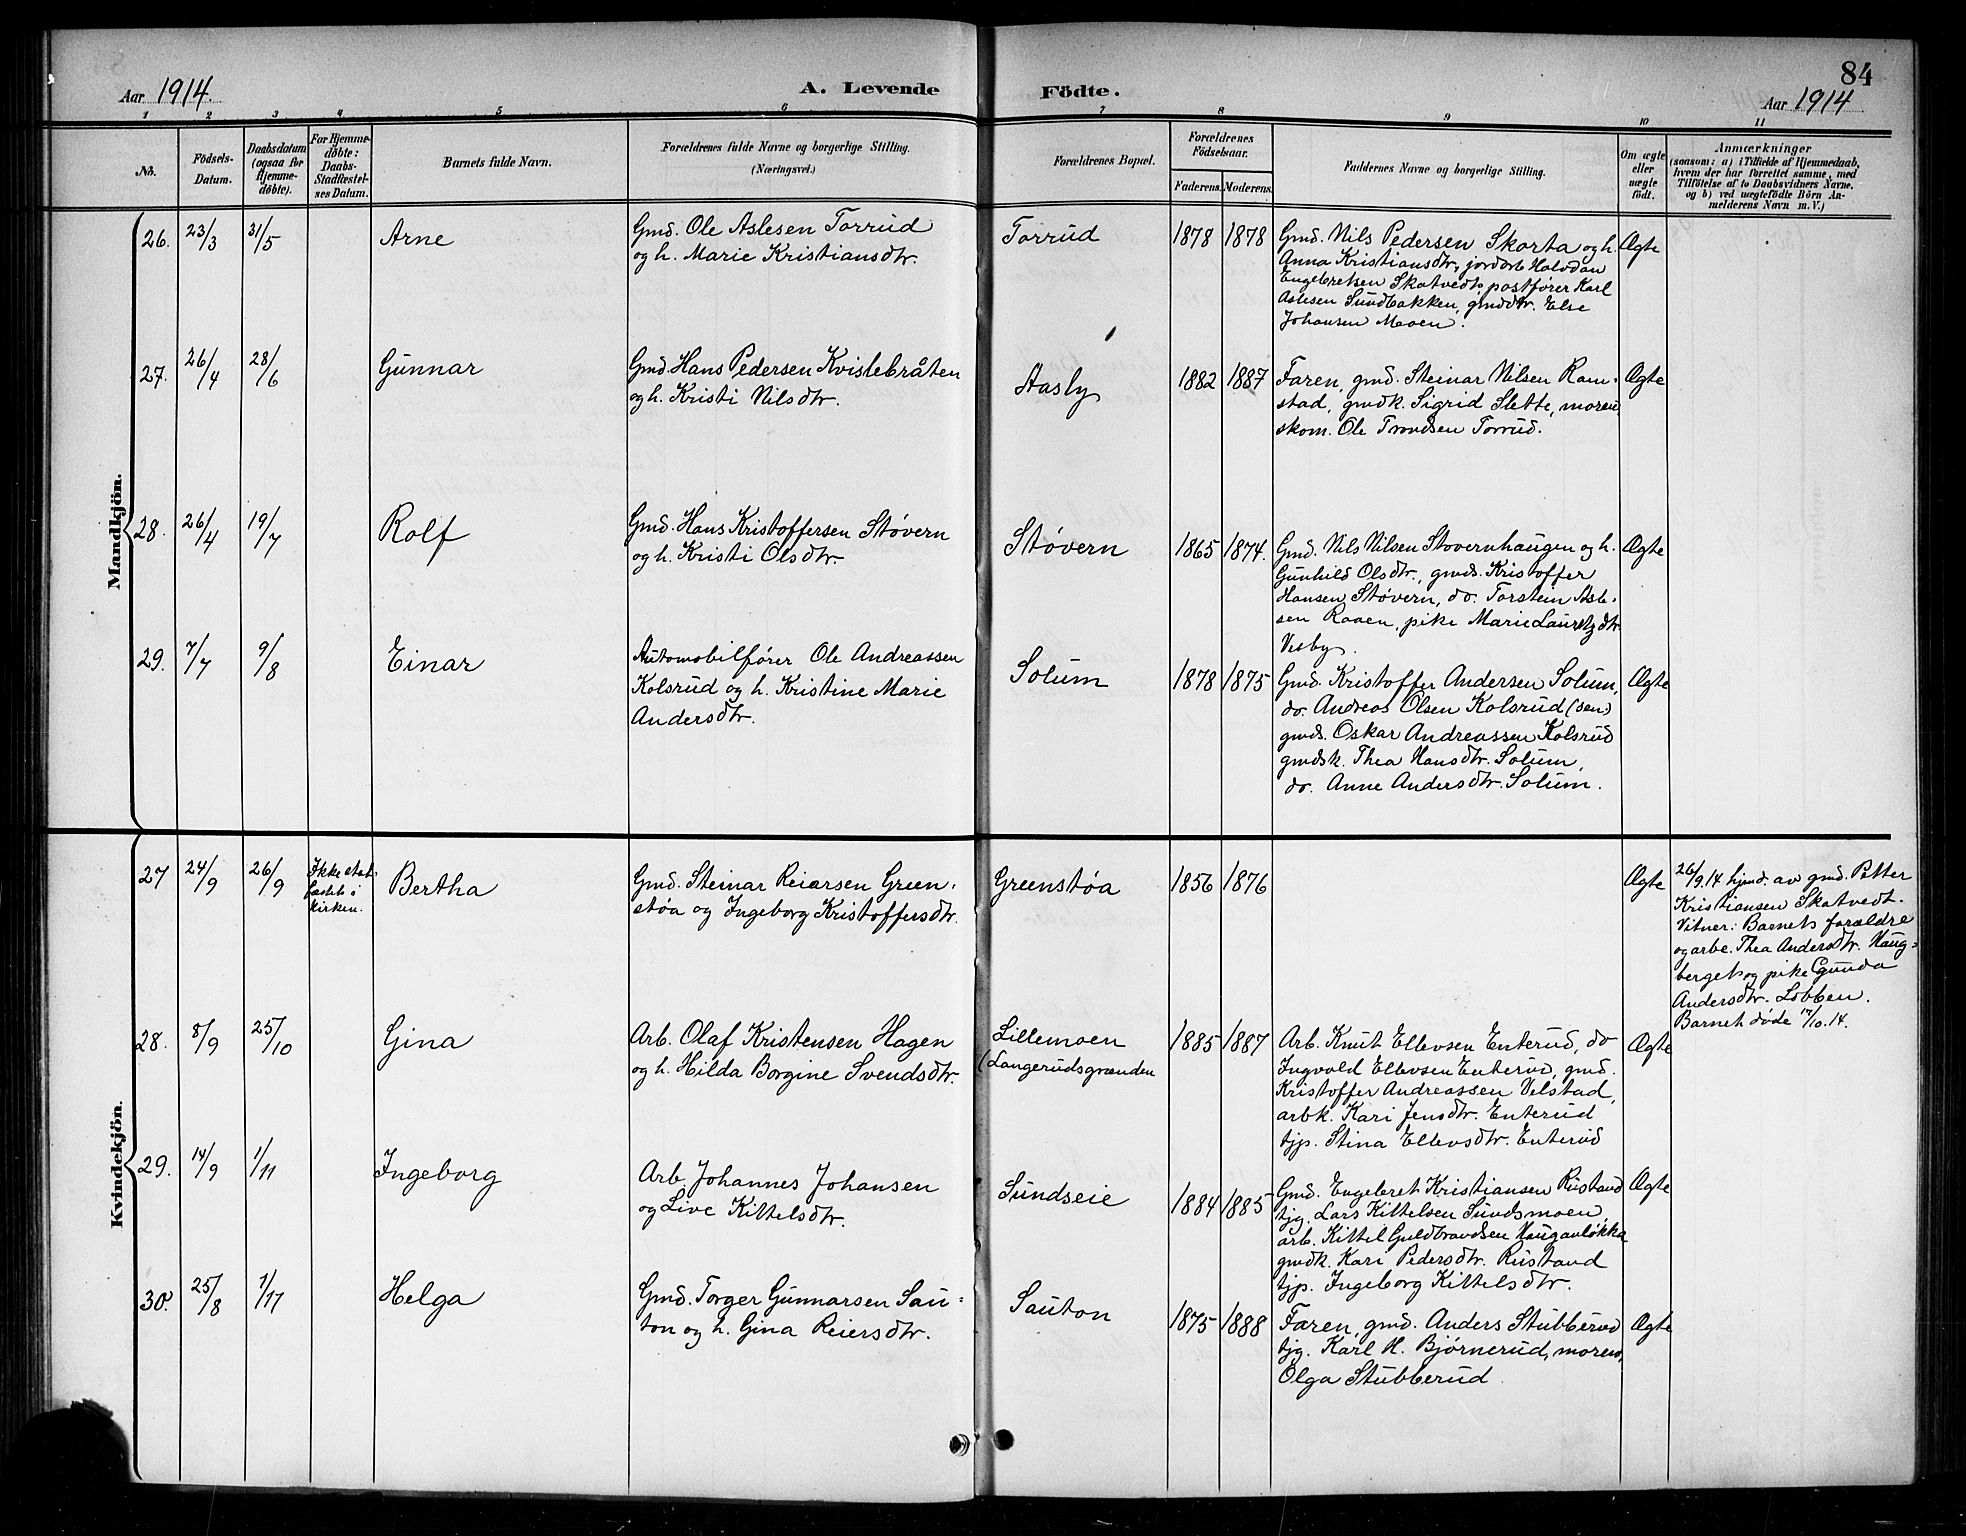 84
Aar 1914.
A. Levende Födte.
Aar 1914
1 2 3 4 5 6 7 8 9 10 11
No.
Födsels-Datum.
Daabsdatum (ogsaa for Hjemmedöbte).
For Hjemmedöbte: Daabs-Stadfæstelses Datum.
Barnets fulde Navn.
Forældrenes fulde Navne og borgerlige Stilling. (Næringsvei.)
Forældrenes Bopæl.
Forældrenes Födselsaar.
Faderens. Moderens.
Faddernes Navne og borgerlige Stilling.
Om ægte eller uægte födt.
Anmærkninger
(saasom: a) i Tilfælde af Hjemmedaab, hvem der har forrettet samme, med Tilföielse af to Daabsvidners Navne, og b) ved uægtefödte Börn Anmelderens Navn m. V.)
Mandkjön.
26. 23/3 31/5 Arne
Gmd. Ole Aslesen Torrud
og h. Marie Kristiansdtr.
Torrud 1878 1878
Gmd. Nils Pedersen Skarta og h.
Anna Kristiansdtr, jordarb Halvdan
Engebretsen Skatvedt, postfører Karl
Aslesen Sundbakken, gmddtr. Else
Johansen Moen.
Ægte
27. 26/4 28/6 Gunnar
Gmd. Hans Pedersen Kvislebråten
og h. Kristi Nilsdtr.
Aasly 1882 1887
Faren, gmd. Steinar Nilsen Ram-
stad, gmdk. Sigrid Slette, moren,
skom. Ole Trondsen Torrud.
Ægte
28. 26/4 19/7 Rolf
Gmd. Hans Kristoffersen Støvern
og h. Kristi Olsdtr.
Støvern 1865 1874.
Gmd. Nils Nilsen Stovernhaugen og h.
Gunhild Olsdtr., gmds. Kristoffer
Hansen Støvern, do. Torstein Asle-
sen Raaen, pike Marie Lauritzdtr.
Vesby.
Ægte
29. 7/7 9/8 Einar
Automobilfører Ole Andreassen
Kolsrud og h. Kristine Marie
Andersdtr.
Solum 1878 1875
Gmd. Kristoffer Andersen Solum,
do. Andreas Olsen Kolsrud (sen.)
gmds. Oskar Andreassen Kolsrud
gmdsk. Thea Hansdtr. Solum,
do. Anne Andersdtr. Solum.
Ægte
Kvindekjön.
27 24/9 26/9
Ikke stad-
fæstet i
kirken.
Bertha
Gmd. Steinar Reiarsen Green-
støa og Ingeborg Kristoffersdtr.
Greenstøa 1856 1876
Ægte
26/9.14 hjmd. av gmd. Petter
Kristiansen Skatvedt.
Vitner: Barnets forældre
og arbe. Thea Andersdtr. Haug-
berget og pike Gunda
Andersdtr. Lobben.
Barnet døde 17/10.14.
28. 8/9 25/10 Gina
Arb. Olaf Kristensen Hagen
og h. Hilda Borgine Svendsdtr.
Lillemoen
(Langerudsgrænden
1885 1887
Arb. Knut Ellevsen Enterud, do
Ingvald Ellevsen Enterud, gmd.
Kristoffer Andreassen Velstad,
arbk. Kari Jensdtr. Enterud
tjp. Stina Ellevsdtr. Enterud
Ægte
29. 14/9 1/11 Ingeborg
Arb. Johannes Johansen
og Live Kittelsdtr.
Sundseie 1884 1885
Gmd. Engebret Kristiansen Rustand
tjg. Lars Kittelsen Sundsmoen,
arb. Kittel Guldbrandsen Hauganløkka
gmdk. Kari Pedersdtr. Rustand
tjp. Ingeborg Kittelsdtr.
Ægte
30. 25/8 1/11 Helga
Gmd. Torger Gunnarsen Sau-
ton og h. Gina Reiersdtr.
Sauton 1875 1888
Faren, gmd. Anders Stubberud
tjg. Karl H. Bjørnerud, moren,
Olga Stubberud
Ægte